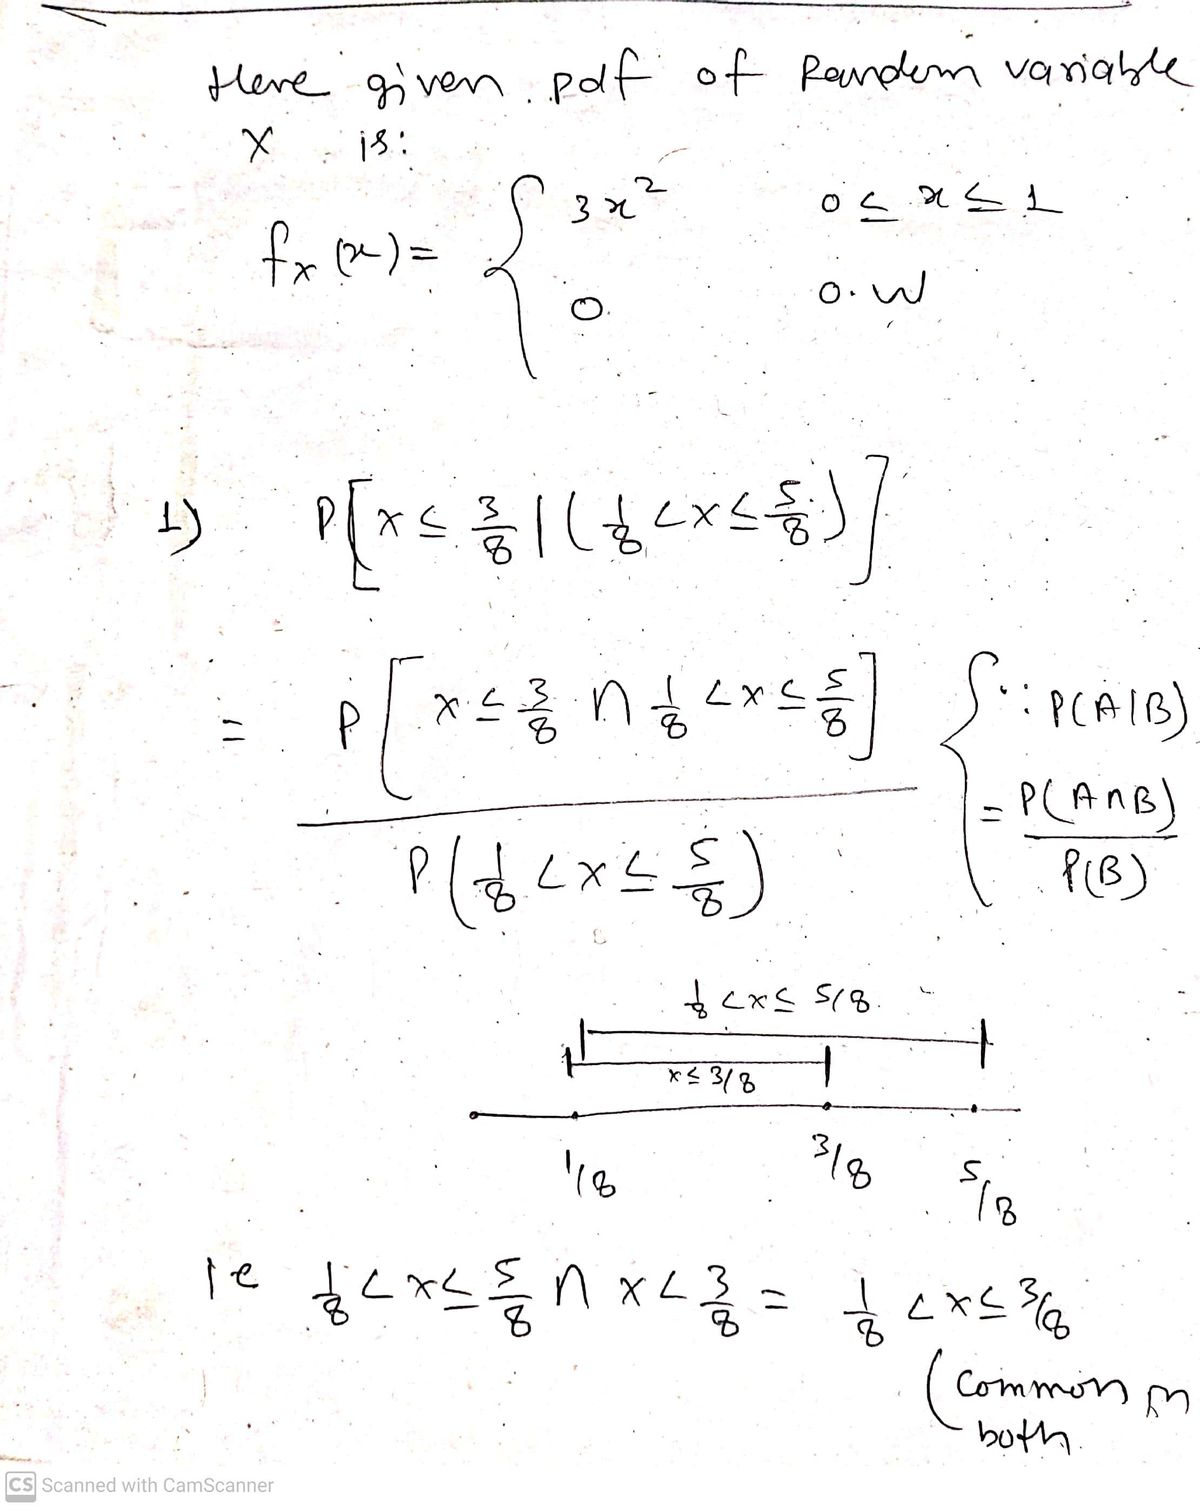 Here given pdf of Random variable
X is:
fx(x) = { 3x² 0 ≤ x ≤ 1
0 o.W
1) P[x ≤ 3/8 | (1/8 < x ≤ 5/8)]
= P[x ≤ 3/8 ∩ 1/8 < x ≤ 5/8] { ∵ P(A|B)
= P(A∩B)
P(1/8 < x ≤ 5/8) P(B)
1/8 < x ≤ 5/8
x ≤ 3/8
1/8 3/8 5/8
ie 1/8 < x ≤ 5/8 ∩ x < 3/8 = 1/8 < x ≤ 3/8
(common in
both
CS Scanned with CamScanner